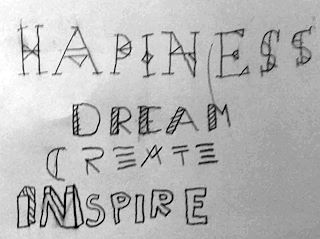 HAPINESS
DREAM
CREATE
INSPIRE